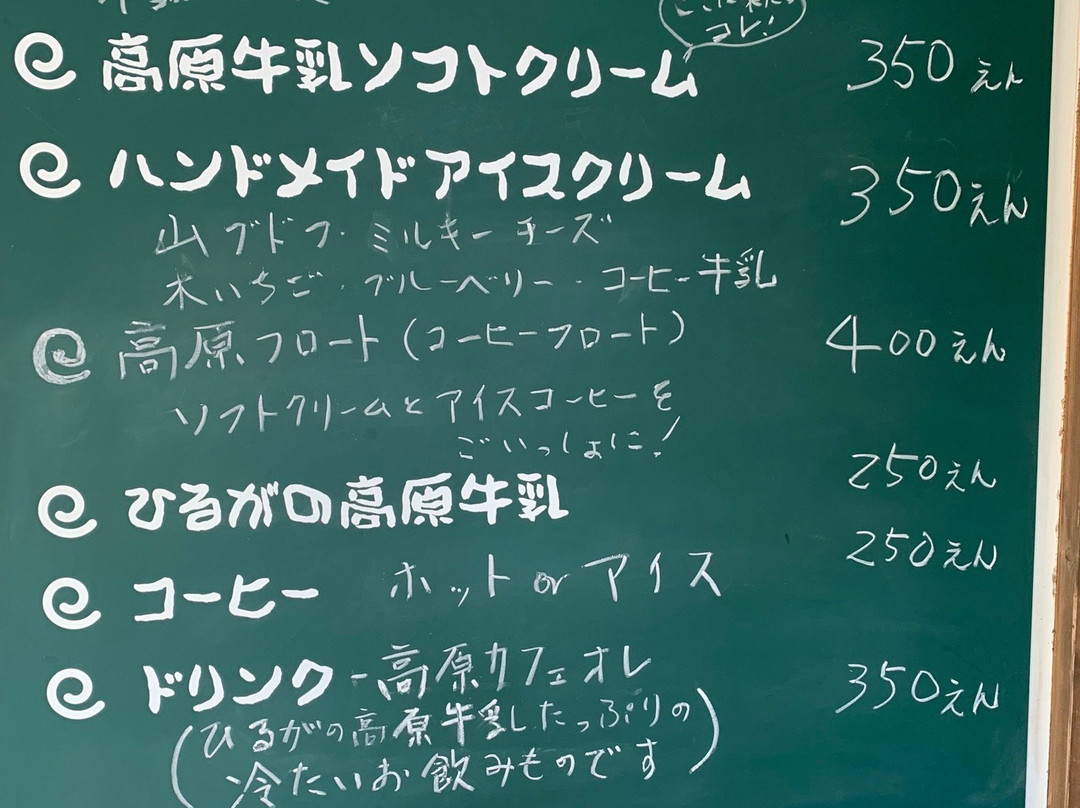 コレ!
高原牛乳ソフトクリーム 350えん
ハンドメイドアイスクリーム 350えん
山ブドウ・ミルキーチーズ
木いちご・ブルーベリー・コーヒー牛乳
高原フロート(コーヒーフロート) 400えん
ソフトクリームとアイスコーヒーを
ごいっしょに!
ひるがの高原牛乳 250えん
コーヒー ホットorアイス 250えん
ドリンク-高原カフェオレ 350えん
(ひるがの高原牛乳したっぷりの
冷たいお飲みものです)